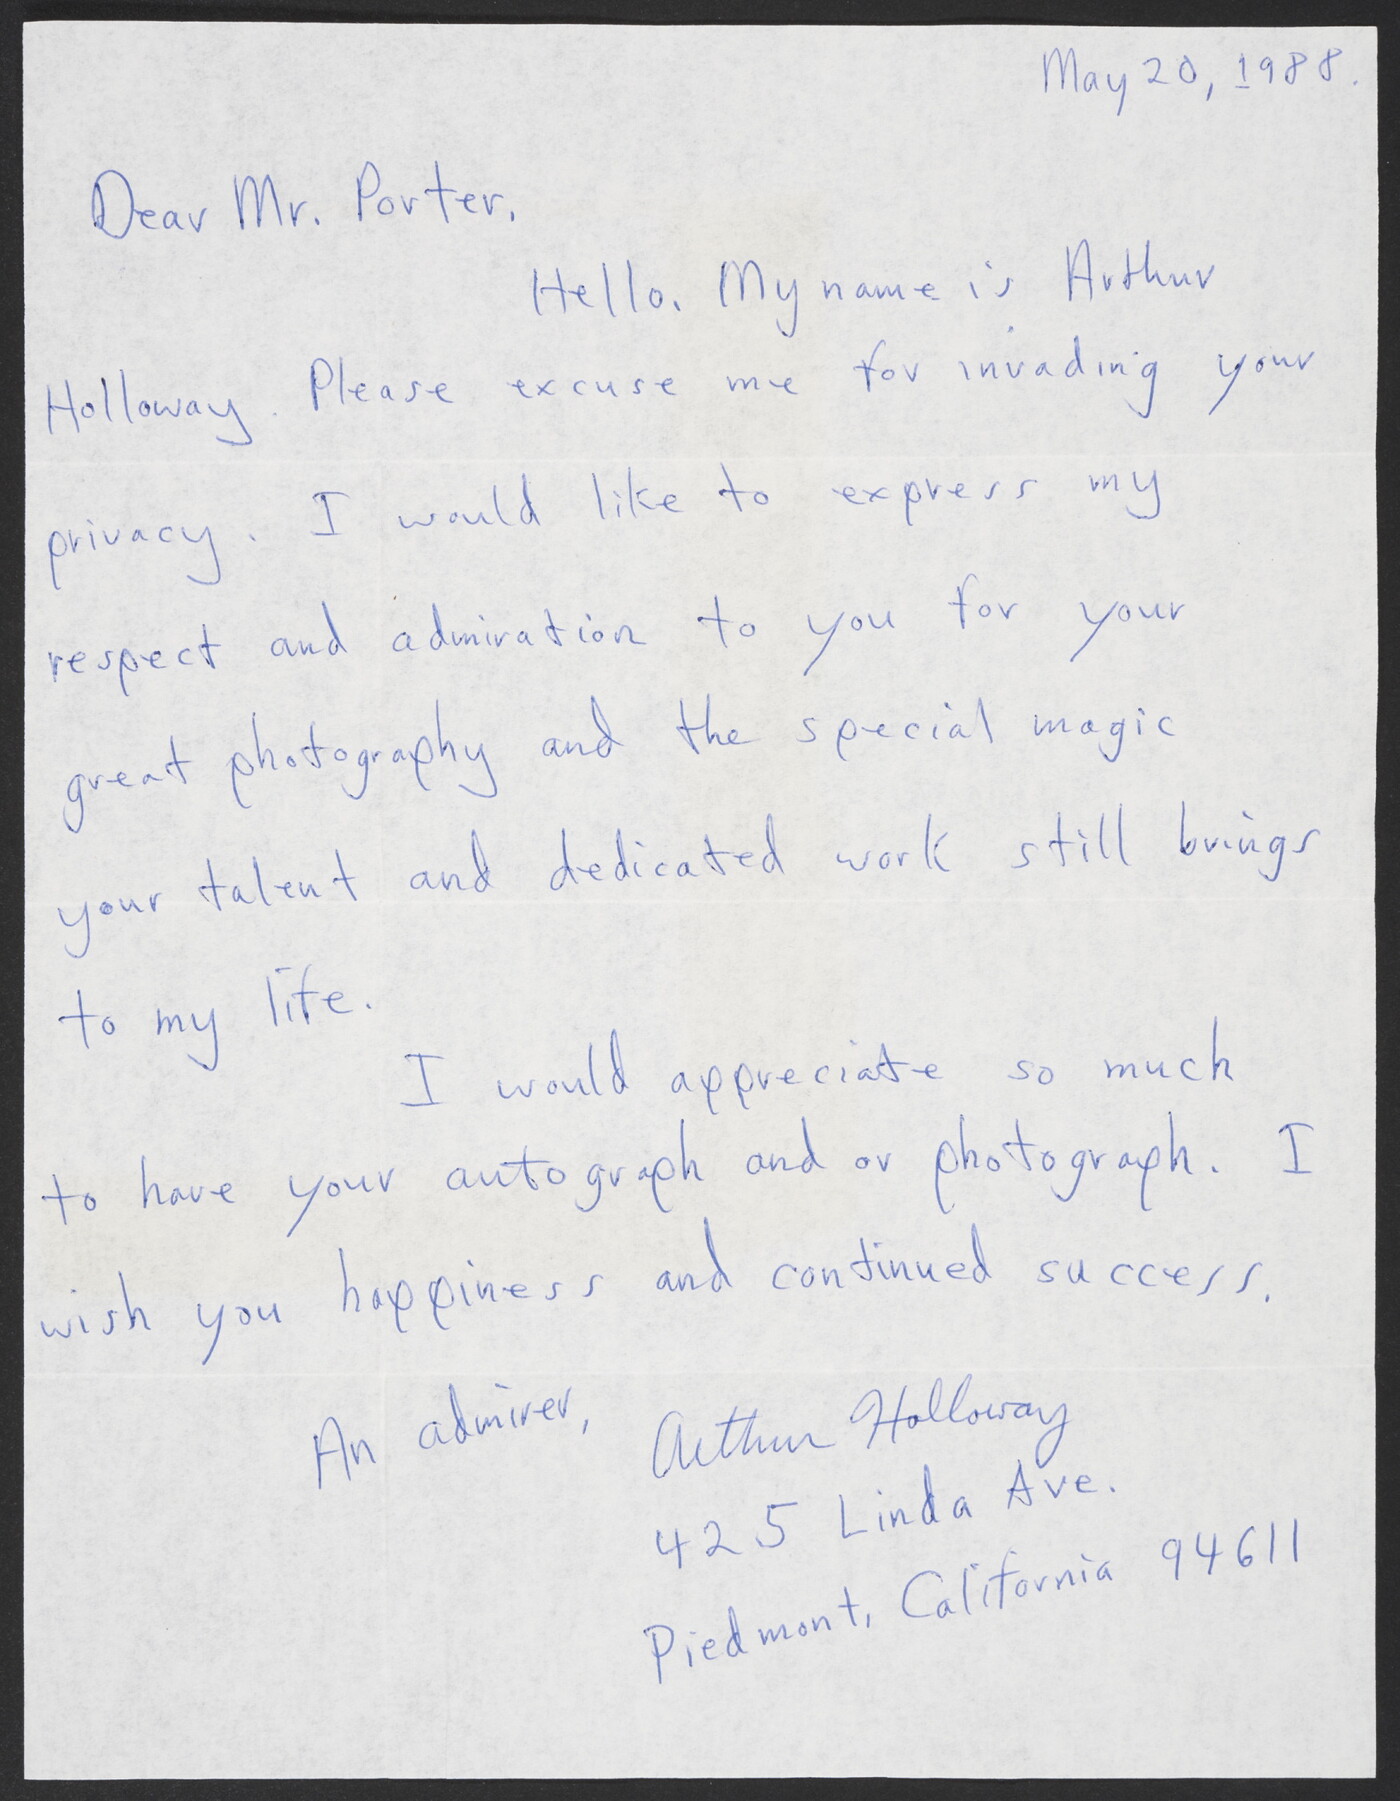 May 20, 1988.
Dear Mr. Porter,
Hello. My name is Arthur
Holloway. Please excuse me for invading your
privacy. I would like to express my
respect and admiration to you for your
great photography and the special magic
your talent and dedicated work still brings
to my life.
I would appreciate so much
to have your autograph and or photograph. I
wish you happiness and continued success.
An admirer, Arthur Holloway
425 Linda Ave.
Piedmont, California 94611